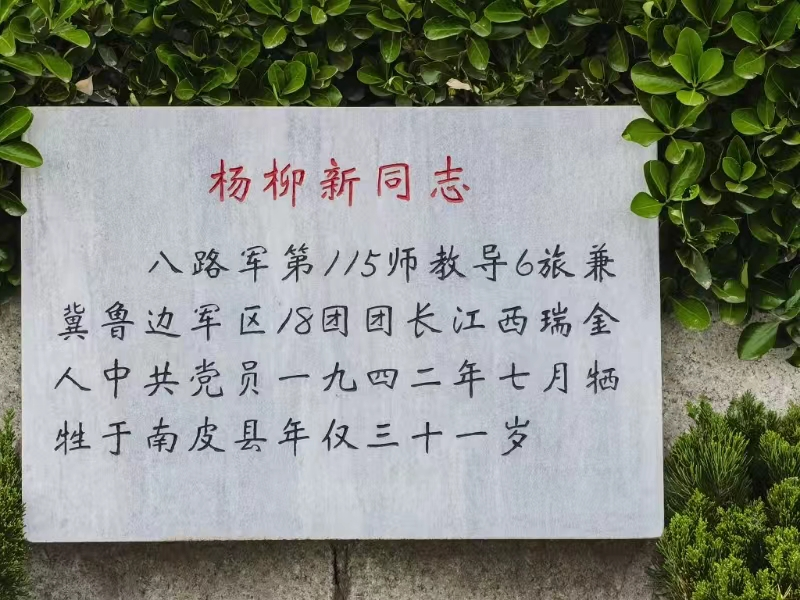 杨柳新同志
八路军第115师教导6旅兼
冀鲁边军区18团团长江西瑞金
人中共党员一九四二年七月牺
牲于南皮县年仅三十一岁